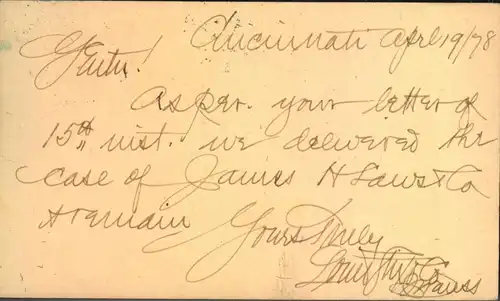 Cincinnati Apl 19/78
Gents!
As per. your letter of
15th inst. we delivered the
case of James H Laws & Co
& remain
Yours Truly